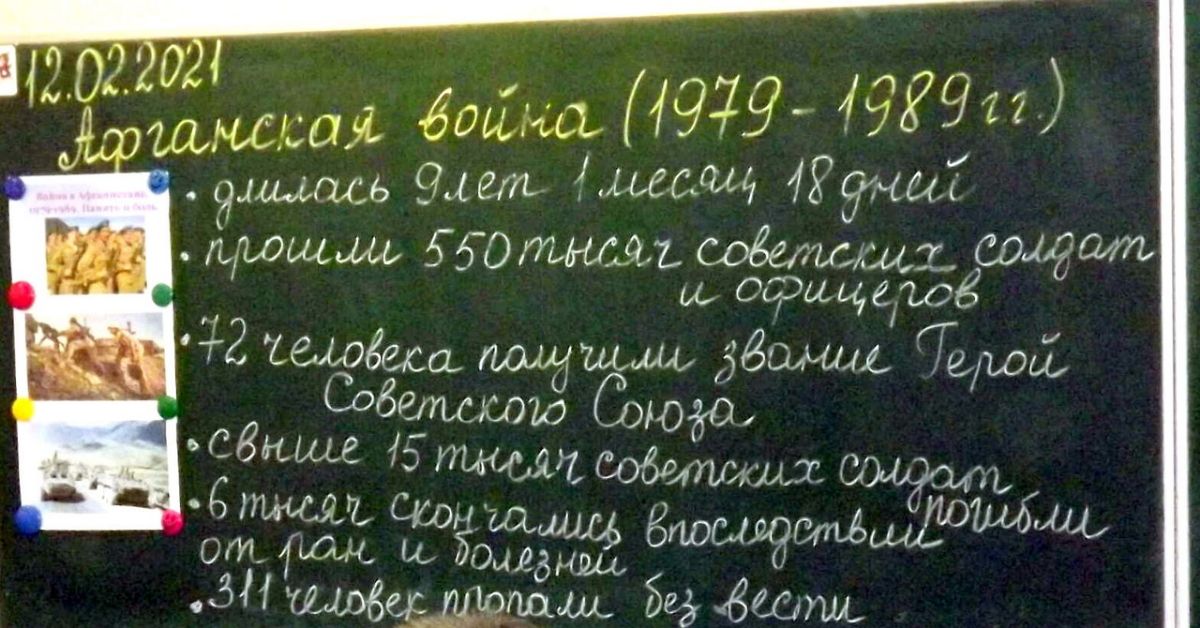 12.02.2021
Афганская война (1979-1989 гг.)
Война в Афганистане
1979-1989. Память и боль
• длилась 9 лет 1 месяц 18 дней
• прошли 550 тысяч советских солдат
и офицеров
• 72 человека получили звание Герой
Советского Союза
• свыше 15 тысяч советских солдат
погибли
• 6 тысяч скончались впоследствии
от ран и болезней
• 311 человек пропали без вести